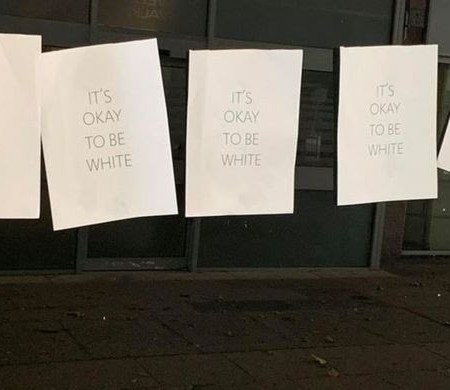 IT'S
OKAY
TO BE
WHITE
IT'S
OKAY
TO BE
WHITE
IT'S
OKAY
TO BE
WHITE